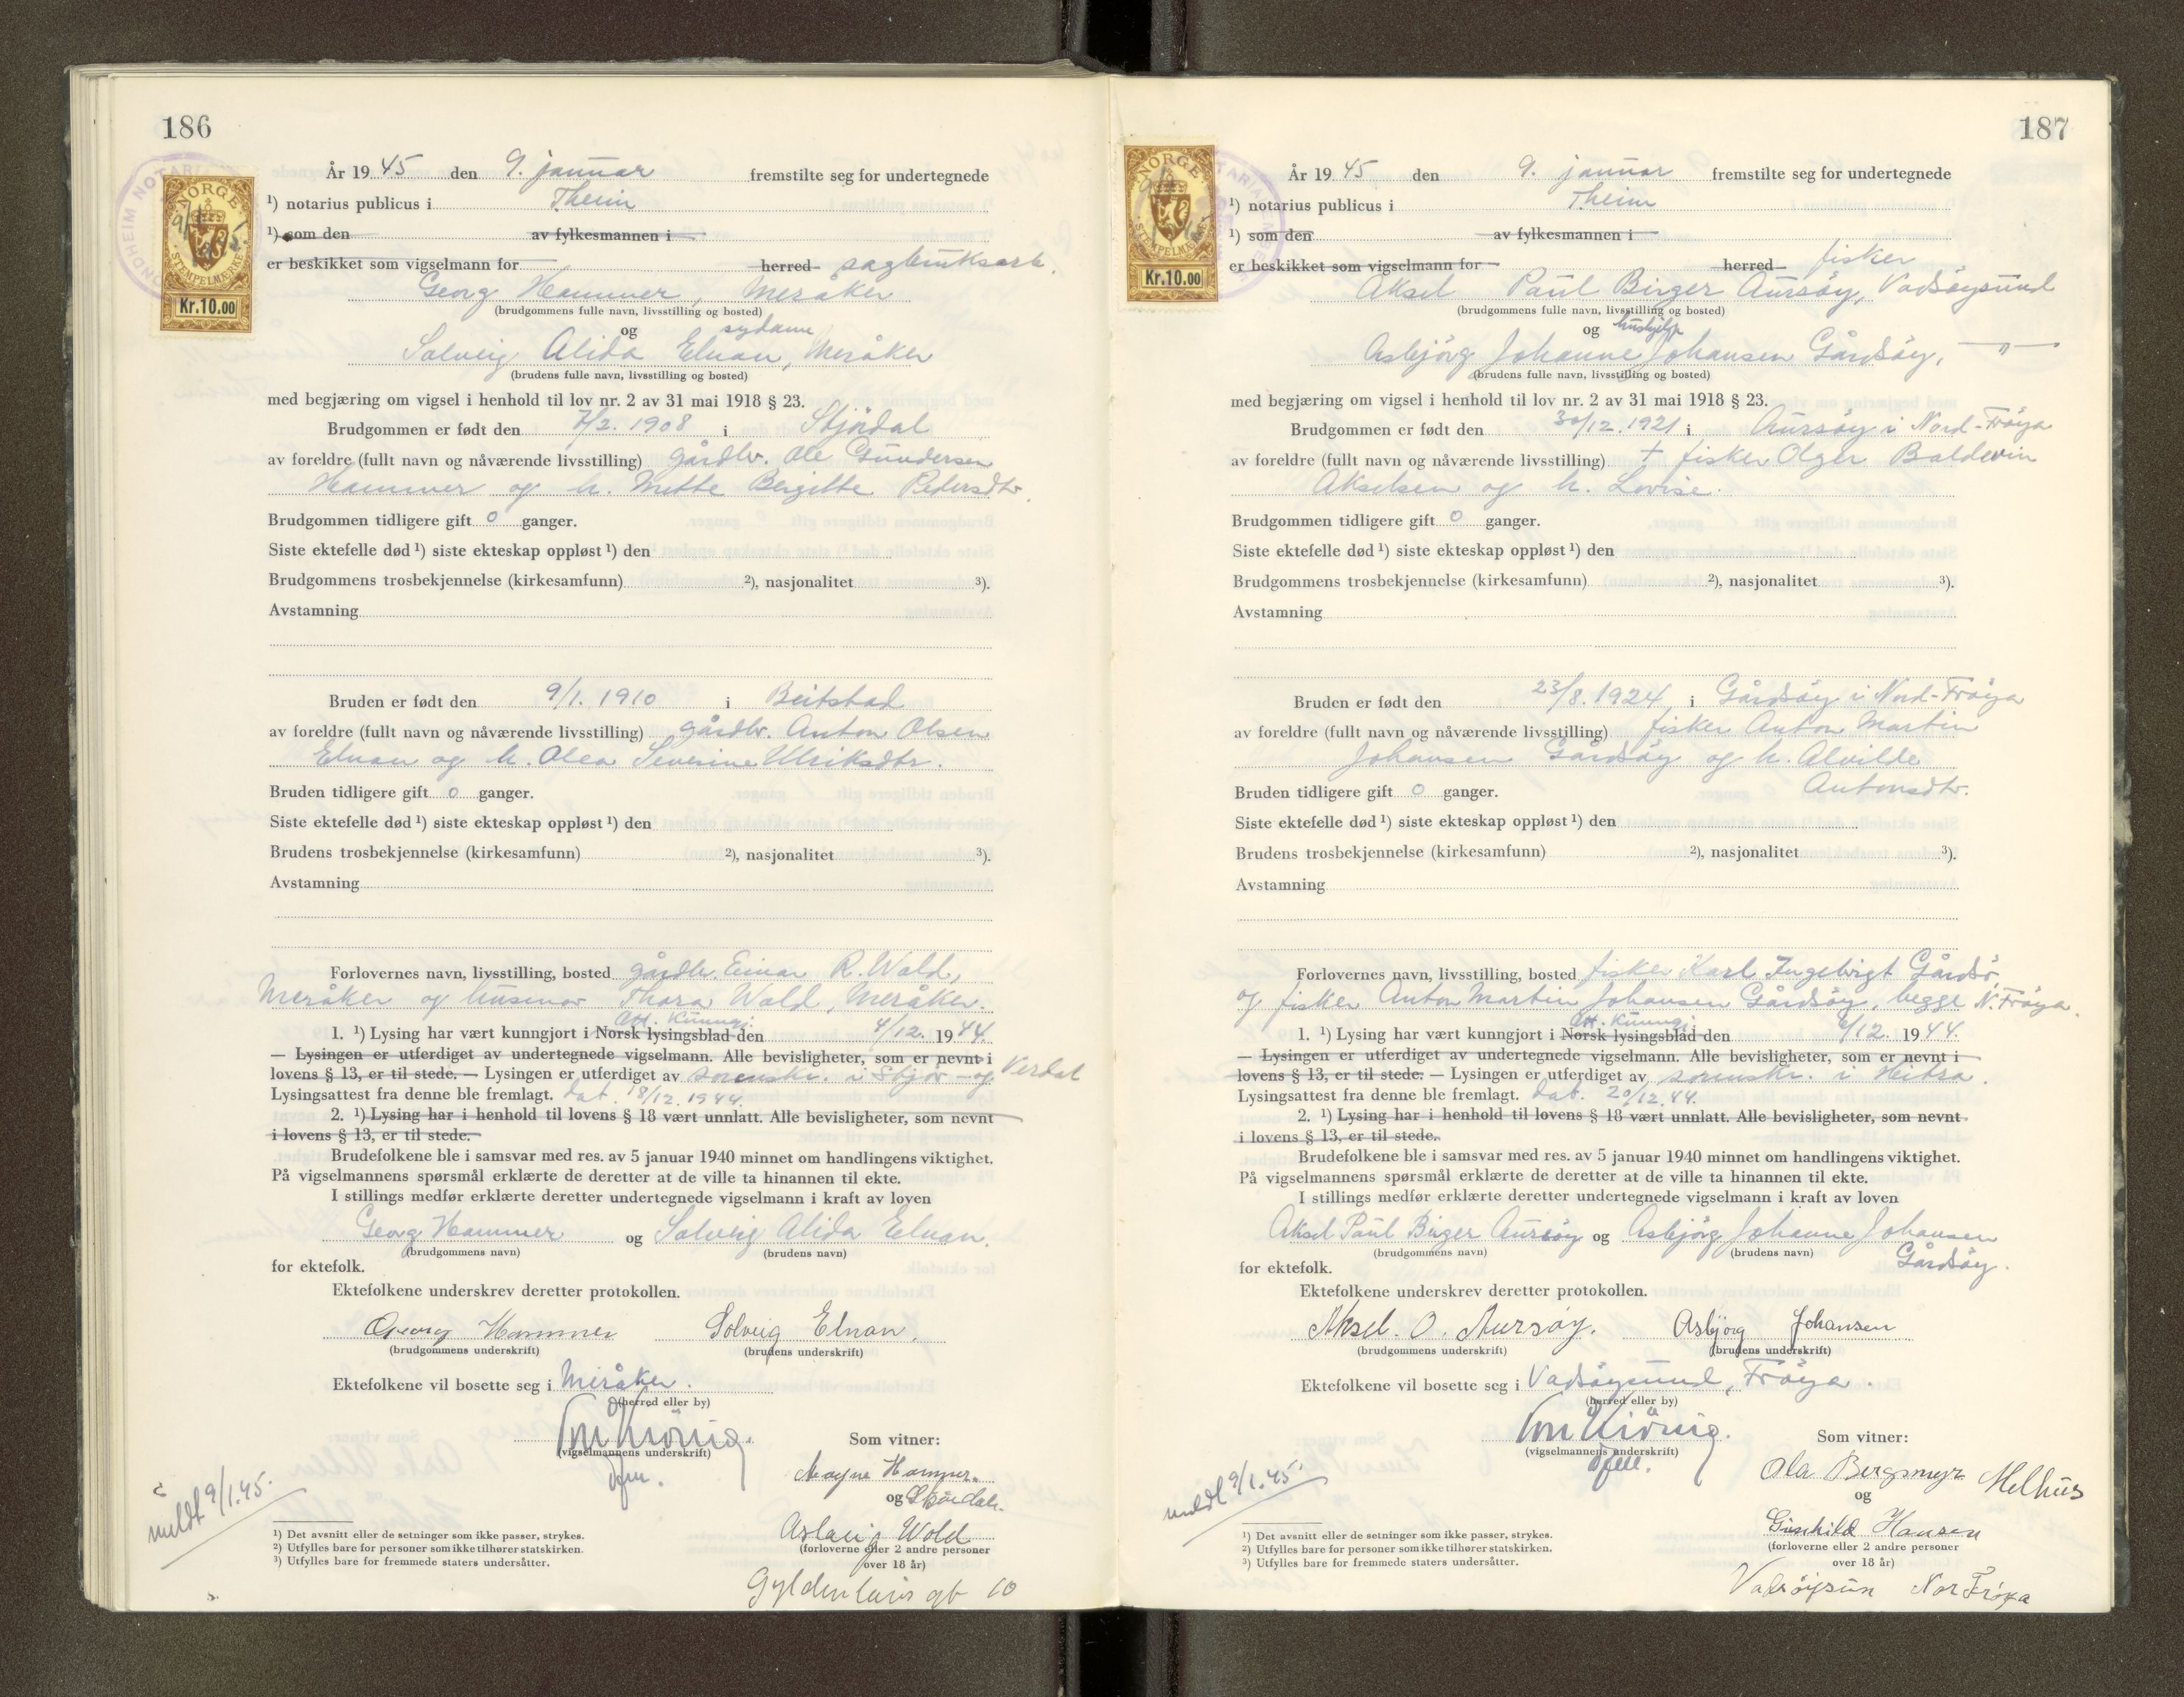 186
År 19 45 den 9. januar fremstilte seg for undertegnede
¹) notarius publicus i Theim
¹) som den av fylkesmannen i
er beskikket som vigselmann for herred sagbruksarb.
Georg Hammer, Meråker
(brudgommens fulle navn, livsstilling og bosted)
og sydame
Solveig Alida Elnan, Meråker
(brudens fulle navn, livsstilling og bosted)
med begjæring om vigsel i henhold til lov nr. 2 av 31 mai 1918 § 23.
Brudgommen er født den 7/2. 1908 i Stjørdal
av foreldre (fullt navn og nåværende livsstilling) gårdbr. Ole Gundersen
Hammer og h. Mette Bergitte Pedersdtr.
Brudgommen tidligere gift 0 ganger.
Siste ektefelle død ¹) siste ekteskap oppløst ¹) den
Brudgommens trosbekjennelse (kirkesamfunn) ²), nasjonalitet ³).
Avstamning
Bruden er født den 9/1. 1910 i Beitstad
av foreldre (fullt navn og nåværende livsstilling) gårdbr. Anton Olsen
Elnan og h. Olea Severine Ulriksdtr.
Bruden tidligere gift 0 ganger.
Siste ektefelle død ¹) siste ekteskap oppløst ¹) den
Brudens trosbekjennelse (kirkesamfunn) ²), nasjonalitet ³).
Avstamning
Forlovernes navn, livsstilling, bosted gårdbr. Einar R. Wold,
Meråker og husmor Thora Wold, Meråker.
att. kunngj.
1. ¹) Lysing har vært kunngjort i Norsk lysingsblad den 4/12. 1944.
— Lysingen er utferdiget av undertegnede vigselmann. Alle bevisligheter, som er nevnt i
lovens § 13, er til stede. — Lysingen er utferdiget av sorenskr. i Stjør- og Verdal
Lysingsattest fra denne ble fremlagt. dat. 18/12. 1944.
2. ¹) Lysing har i henhold til lovens § 18 vært unnlatt. Alle bevisligheter, som nevnt
i lovens § 13, er til stede.
Brudefolkene ble i samsvar med res. av 5 januar 1940 minnet om handlingens viktighet.
På vigselmannens spørsmål erklærte de deretter at de ville ta hinannen til ekte.
I stillings medfør erklærte deretter undertegnede vigselmann i kraft av loven
Georg Hammer og Solveig Alida Elnan.
(brudgommens navn) (brudens navn)
for ektefolk.
Ektefolkene underskrev deretter protokollen.
Georg Hammer Solveig Elnan.
(brudgommens underskrift) (brudens underskrift)
Ektefolkene vil bosette seg i Meråker.
(herred eller by)
(vigselmannens underskrift)
Som vitner:
Magne Hammer.
og Stjørdal.
Aslaug Wold
(forloverne eller 2 andre personer
over 18 år)
Gyldenløvs gt 10
meldt 9/1.45.
¹) Det avsnitt eller de setninger som ikke passer, strykes.
²) Utfylles bare for personer som ikke tilhører statskirken.
³) Utfylles bare for fremmede staters undersåtter.
NORGE
STEMPELMERKE
Kr.10.00
187
År 19 45 den 9. januar fremstilte seg for undertegnede
¹) notarius publicus i Theim
¹) som den av fylkesmannen i
er beskikket som vigselmann for herred fisker
Aksel Paul Birger Aursøy, Vadsøysund
(brudgommens fulle navn, livsstilling og bosted)
og hushjelp
Asbjörg Johanne Johansen Gårdsøy, — " —
(brudens fulle navn, livsstilling og bosted)
med begjæring om vigsel i henhold til lov nr. 2 av 31 mai 1918 § 23.
Brudgommen er født den 30/12. 1921 i Aursøy i Nord-Frøya
av foreldre (fullt navn og nåværende livsstilling) + fisker Olger Baldevin
Akselsen og h. Lovise.
Brudgommen tidligere gift 0 ganger.
Siste ektefelle død ¹) siste ekteskap oppløst ¹) den
Brudgommens trosbekjennelse (kirkesamfunn) ²), nasjonalitet ³).
Avstamning
Bruden er født den 23/8. 1924 i Gårdsøy i Nord-Frøya
av foreldre (fullt navn og nåværende livsstilling) fisker Anton Martin
Johansen Gårdsøy og h. Alvilde
Antonsdtr.
Bruden tidligere gift 0 ganger.
Siste ektefelle død ¹) siste ekteskap oppløst ¹) den
Brudens trosbekjennelse (kirkesamfunn) ²), nasjonalitet ³).
Avstamning
Forlovernes navn, livsstilling, bosted fisker Karl Ingebrigt Gårdsø,
og fisker Anton Martin Johansen Gårdsøy, begge N. Frøya.
att. kunngj.
1. ¹) Lysing har vært kunngjort i Norsk lysingsblad den /12. 1944.
— Lysingen er utferdiget av undertegnede vigselmann. Alle bevisligheter, som er nevnt i
lovens § 13, er til stede. — Lysingen er utferdiget av sorenskr. i Hitra.
Lysingsattest fra denne ble fremlagt. dat. 20/12.44.
2. ¹) Lysing har i henhold til lovens § 18 vært unnlatt. Alle bevisligheter, som nevnt
i lovens § 13, er til stede.
Brudefolkene ble i samsvar med res. av 5 januar 1940 minnet om handlingens viktighet.
På vigselmannens spørsmål erklærte de deretter at de ville ta hinannen til ekte.
I stillings medfør erklærte deretter undertegnede vigselmann i kraft av loven
Aksel Paul Birger Aursøy og Asbjørg Johanne Johansen
(brudgommens navn) (brudens navn) Gårdsøy.
for ektefolk.
Ektefolkene underskrev deretter protokollen.
Aksel. O. Aursøy. Asbjørg Johansen
(brudgommens underskrift) (brudens underskrift)
Ektefolkene vil bosette seg i Vadsøysund, Frøya.
(herred eller by)
(vigselmannens underskrift)
Som vitner:
Ola Bergsmyr Melhus
og
Gunhild Hansen
(forloverne eller 2 andre personer
over 18 år)
Vadsøysun Nor Frøya
meldt 9/1.45.
¹) Det avsnitt eller de setninger som ikke passer, strykes.
²) Utfylles bare for personer som ikke tilhører statskirken.
³) Utfylles bare for fremmede staters undersåtter.
NORGE
STEMPELMERKE
Kr.10.00